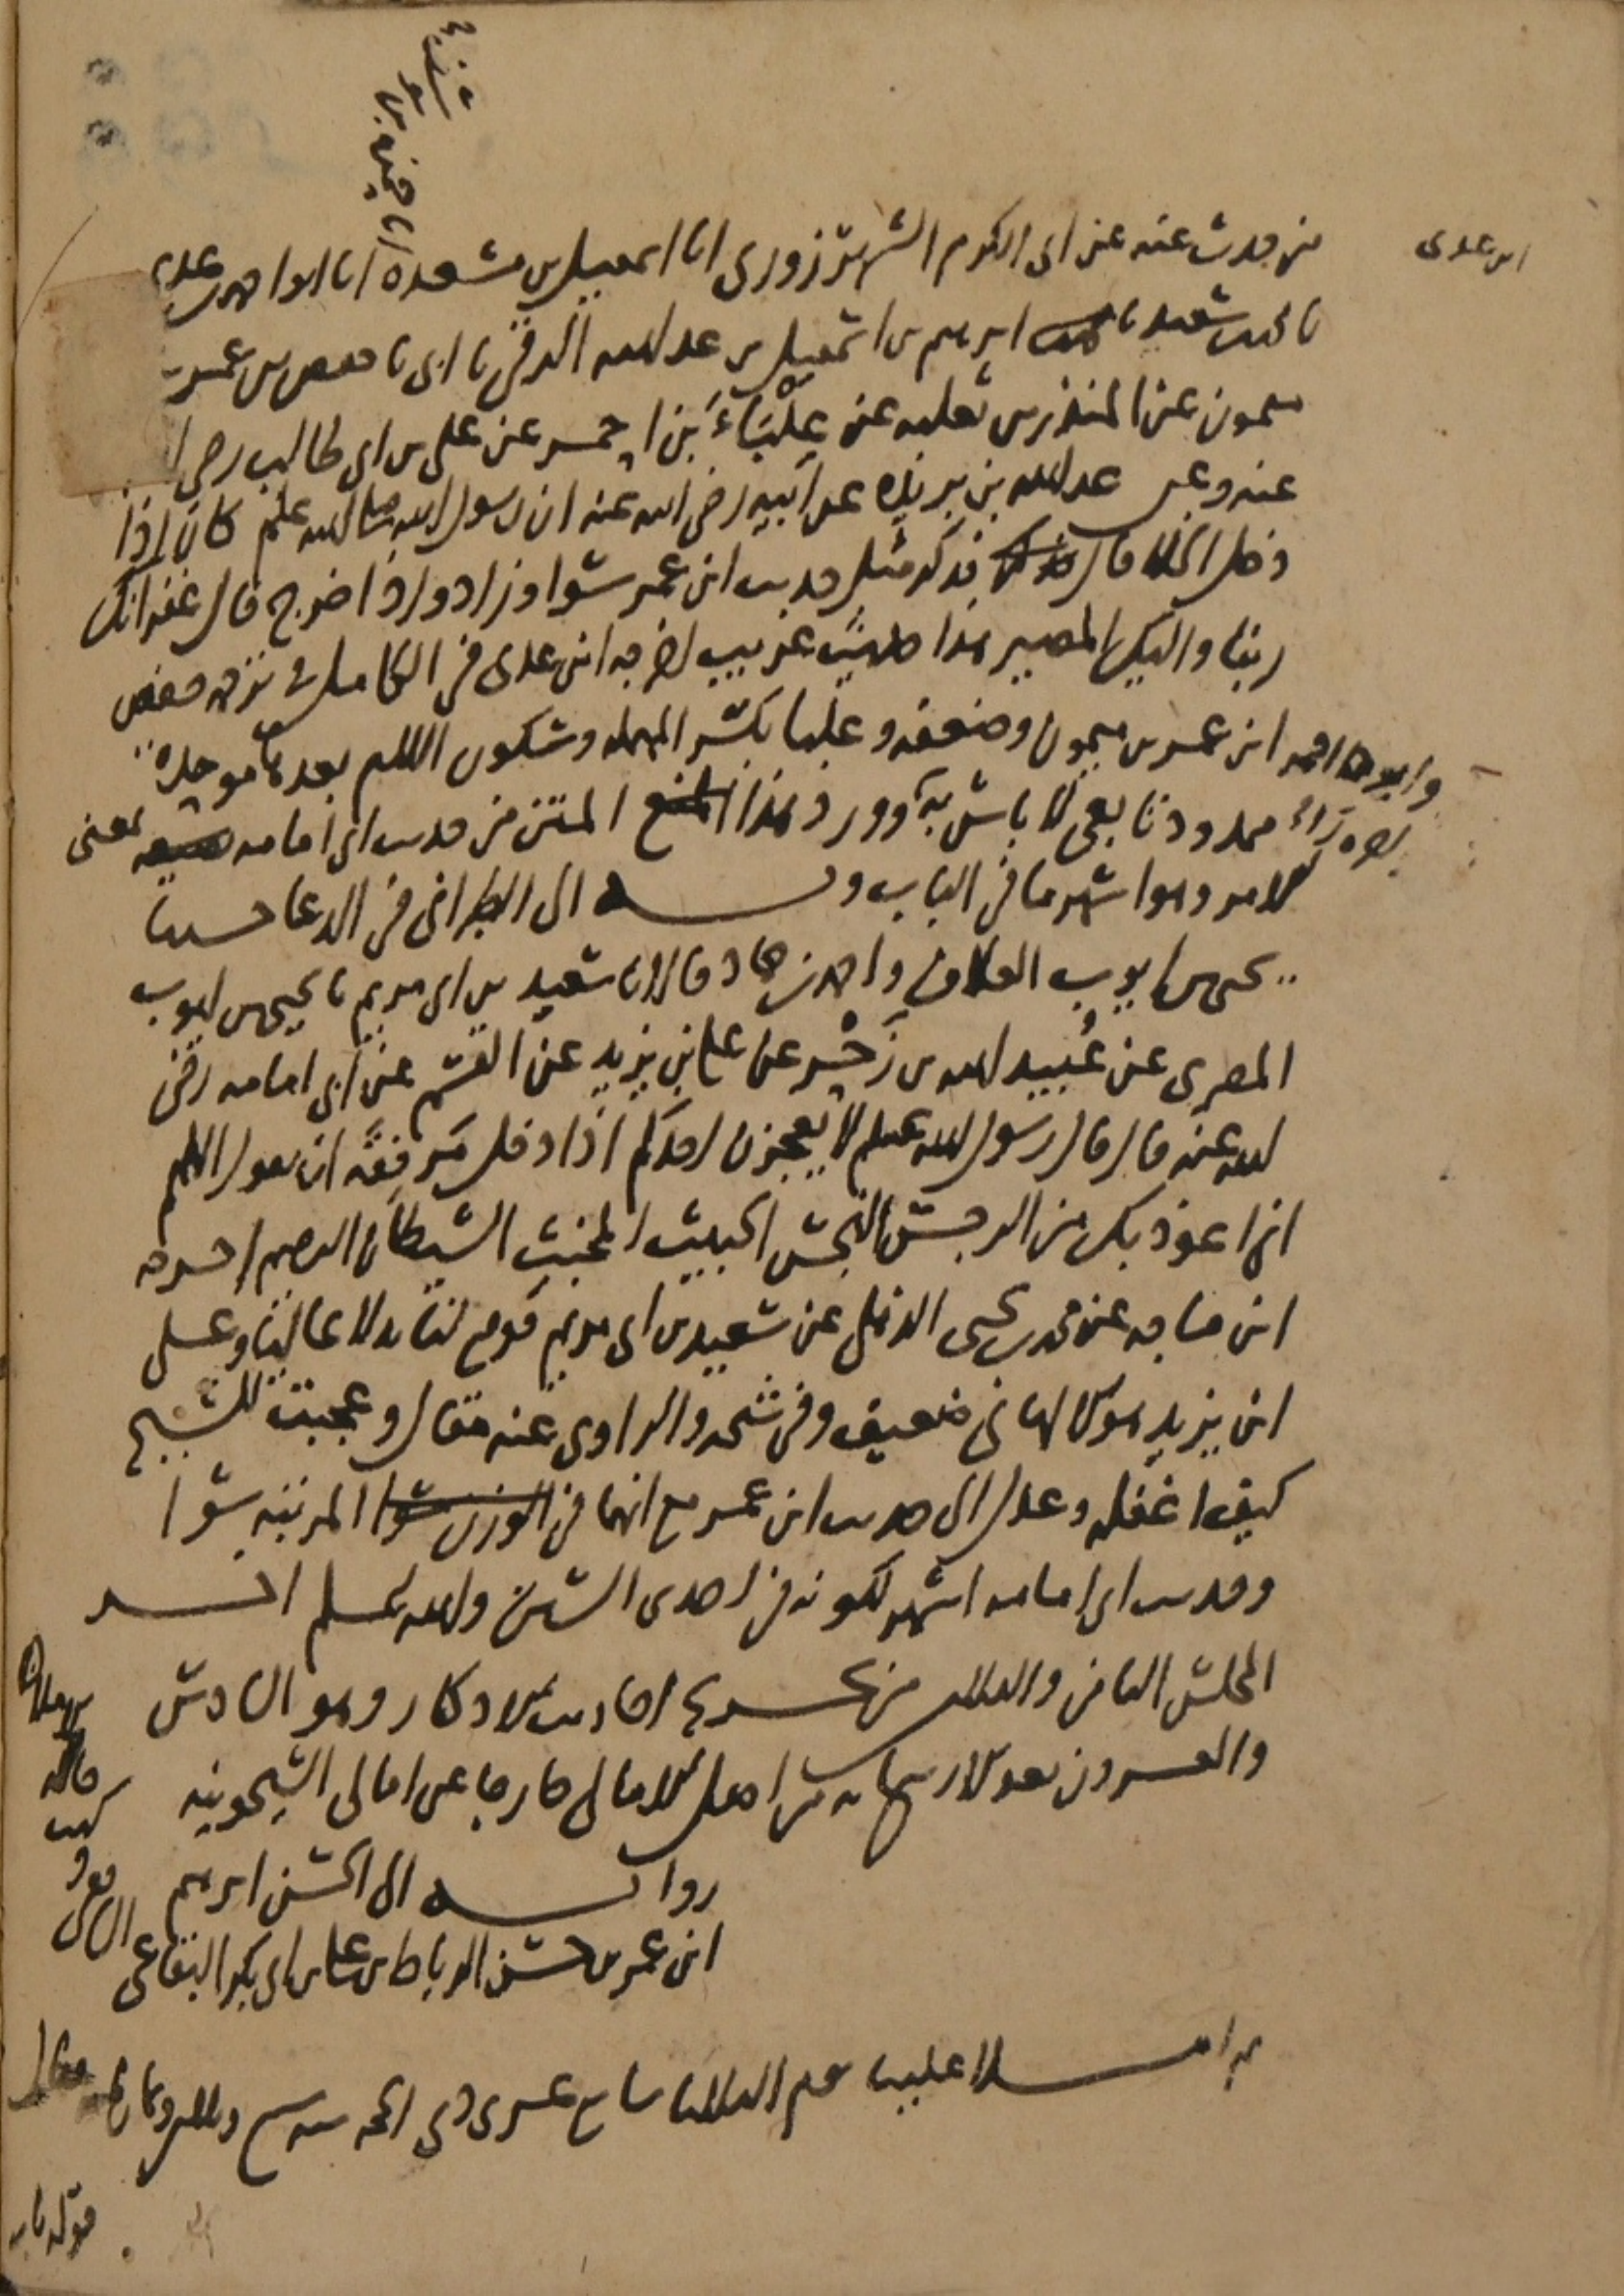 ابن عدى
من حدث عنه عن ابى الكرم الشهرزورى انا اسمعيل بن مسعدة انا ابو احمد بن عدى
نا محمد بن سعيد نا ابرهيم بن اسمعيل بن عبد الله الرقى نا ابى نا حفص بن عمر بن
ميمون عن المنذر بن ثعلبه عن عِلْبَاءَ بن احمر عن على بن ابى طالب رضى ا
عنه وعن عبد الله بن بريده عن ابيه رضى الله عنه ان رسول الله صلى الله عليه وسلم كان اذا
دخل الخلا قال فذكر مثل حديث ابن عمر سوا وزاد واذا خرج قال غفرانك
ربنا واليك المصير هذا حديث غريب اخرجه ابن عدى فى الكامل فى ترجمه حفص
ابن عمر بن ميمون وضعفه وعلبا بكسر المهمله وسكون اللام بعدها موحدة
وابوه احمر اخره راء
ممدود تابعى لا باس به وورد هذا المتن من حديث ابى امامه بمعنى
الامر وهو اشهر ما فى الباب وبه الى الطبرانى فى الدعا حدثنا
يحيى بن ايوب العلاف واحمد بن حماد قالا نا سعيد بن ابى مريم نا يحيى بن ايوب
المصرى عن عُبيد الله بن زَحْر عن على بن يزيد عن القسم عن ابى امامه رضى
الله عنه قال قال رسول الله صلعم لا يعجزن احدكم اذا دخل مَرفقَه ان يقول اللهم
انى اعوذ بك من الرجس النجس الخبيث المخبث الشيطان الرجيم اخرجه
ابن ماجه عن محمد بن يحيى الذهلى عن سعيد بن ابى مريم فوقع لنا بدلا عاليا وعلى
ابن يزيد هو الالهانى ضعيف وفى شيخه والراوى عنه مقال وعجبت للشيخ
كيف اغفله وعدل الى حديث ابن عمر مع انهما فى المرتبه سوا
وحديث ابى امامه اشهر لكونه فى احدى السنن والله اعلم اخر
المجلس الثامن والثلاثين من تخريج احاديث الاذكار وهو السادس
والعشرون بعد الاربعمائة من اصل الامالى خارجا عن امالى الشيخونيه
روايه ابى الحسن ابرهيم
ابن عمر بن حسن الرباط بن على بن ابى بكر البقاعى
الشافعى
ثم املا علينا يوم الثلاثا سابع عشرى ذى الحجه سنه سبع وثلاثين وثمانمائة
قوله باب